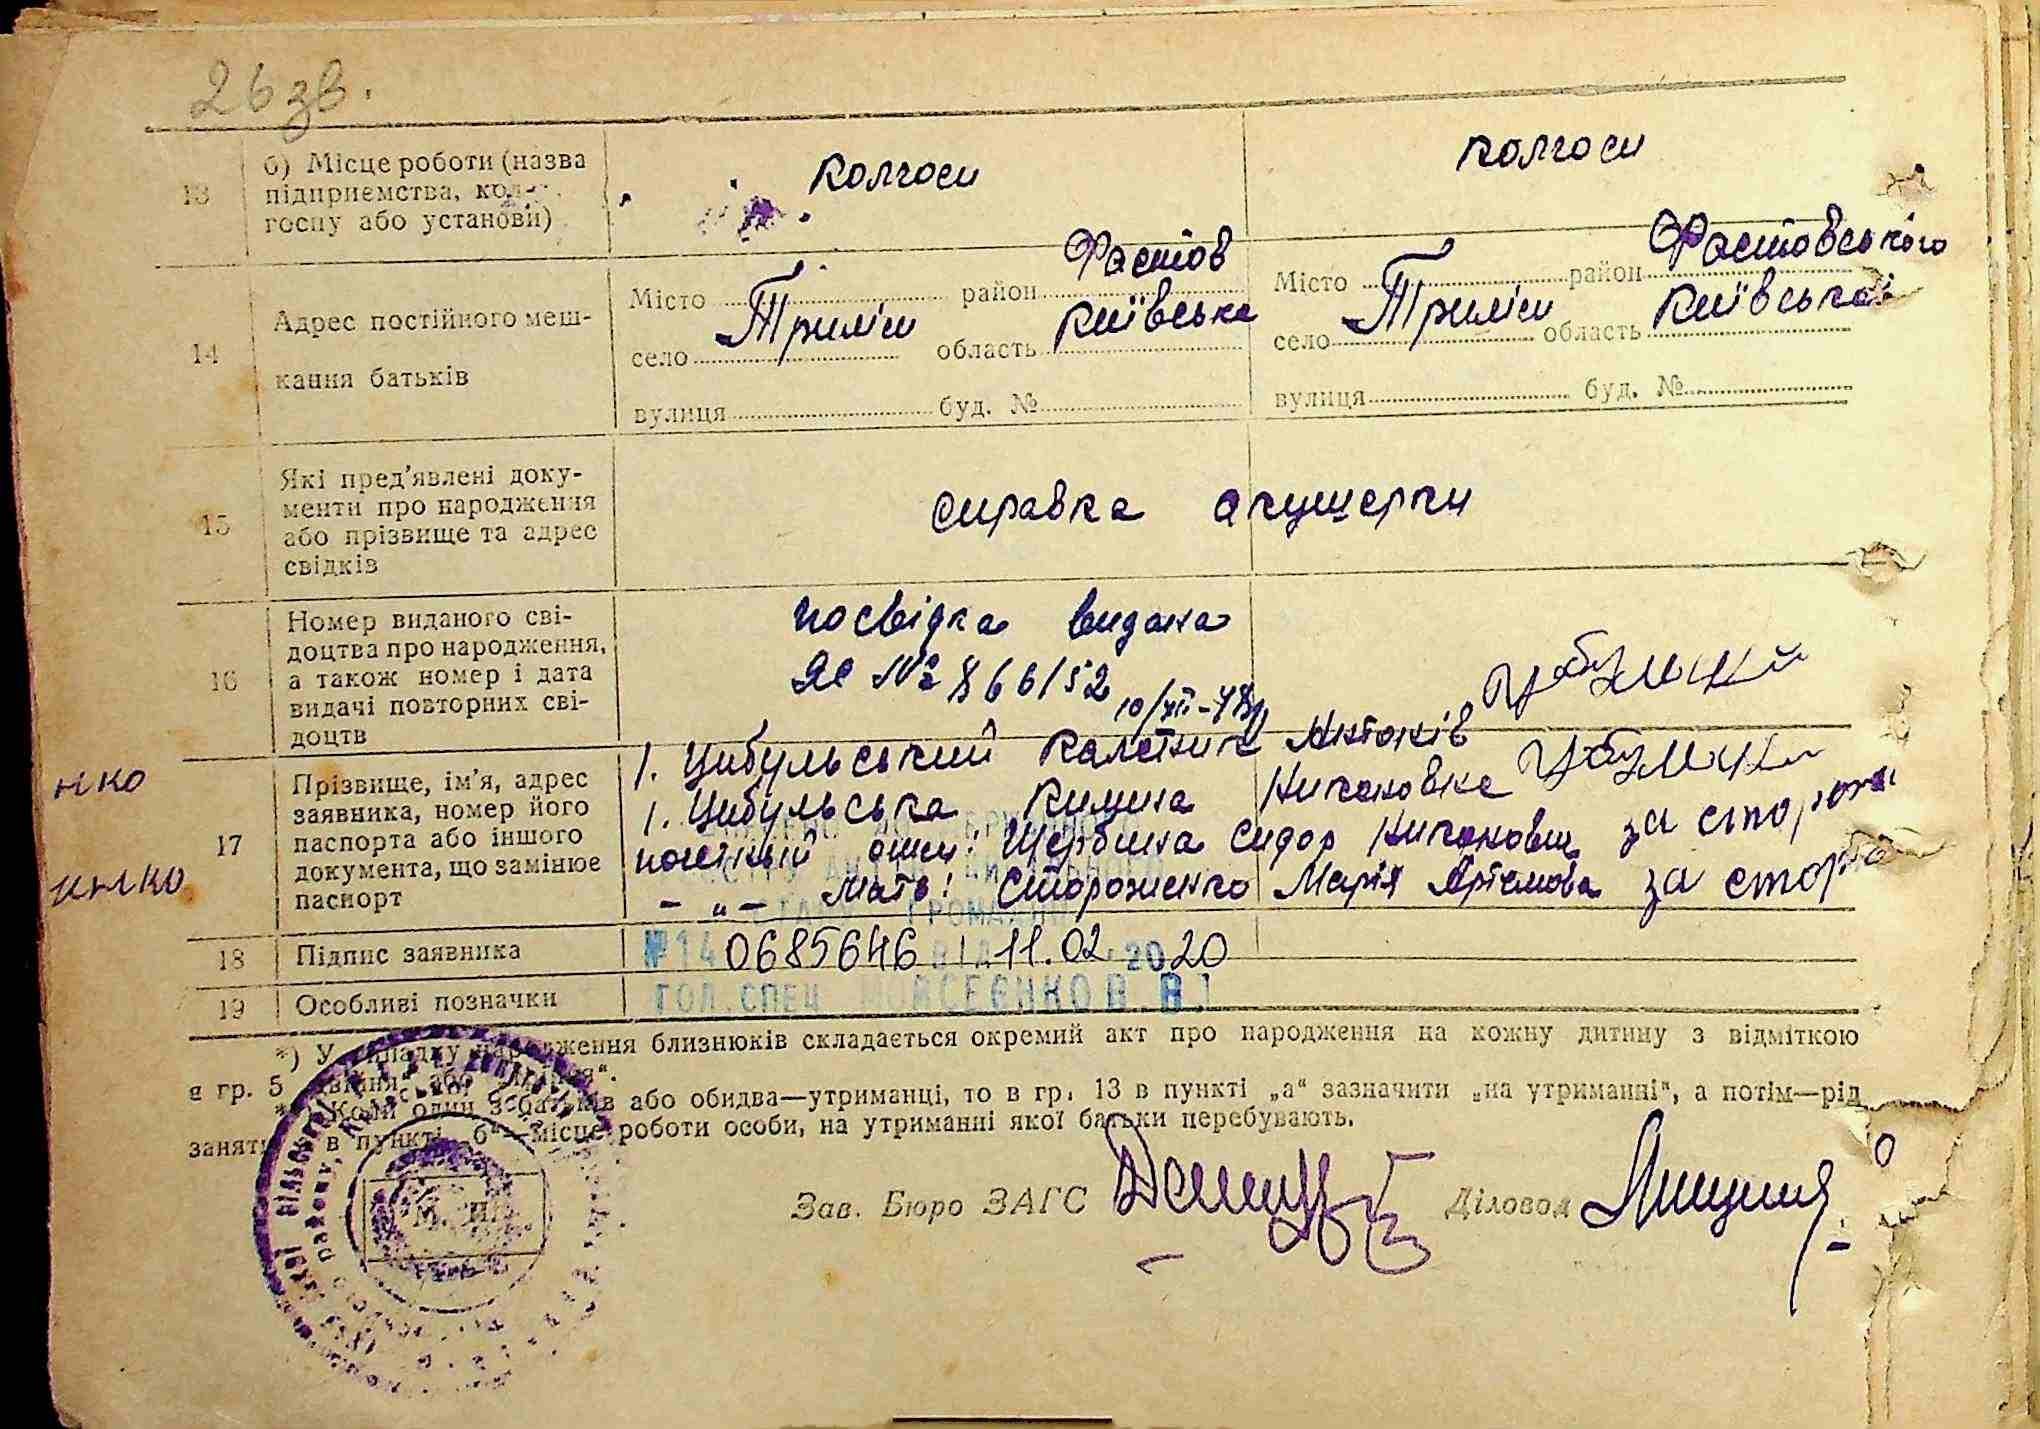 26 зв.
13
б) Місце роботи (назва
підприємства, кол-
госпу або установи)
колгосп
колгосп
14
Адрес постійного меш-
кання батьків
Місто район Фастов
село Триліси область Київська
вулиця буд. №
Місто район Фастовського
село Триліси область Київської
вулиця буд. №
15
Які пред'явлені доку-
менти про народження
або прізвище та адрес
свідків
справка акушерки
16
Номер виданого сві-
доцтва про народження,
а також номер і дата
видачі повторних сві-
доцтв
посвідка видана
ЯЄ № 866152
10/XII-48р
17
Прізвище, ім'я, адрес
заявника, номер його
паспорта або іншого
документа, що замінює
паспорт
1. Цибульський Калетник Антонів Цибульский
1. Цибульська Килина Никоновна
почетний отец: Щербина Сидор Никонови за сторожа
- „ - мать: Стороженко Марія Артемова за сторожа
нко
18
Підпис заявника
№ 14 0685646 ВІД 11.02.2020
19
Особливі позначки
ГОЛ. СПЕЦ МОЙСЕЄНКО В. В.
*) У випадку народження близнюків складається окремий акт про народження на кожну дитину з відміткою
в гр. 5 „двійня“ або „трійня“.
**) Коли один з батьків або обидва—утриманці, то в гр. 13 в пункті „а“ зазначити „на утриманні“, а потім—рід
занять, в пункті „б“—місце роботи особи, на утриманні якої батьки перебувають.
Зав. Бюро ЗАГС
Діловод